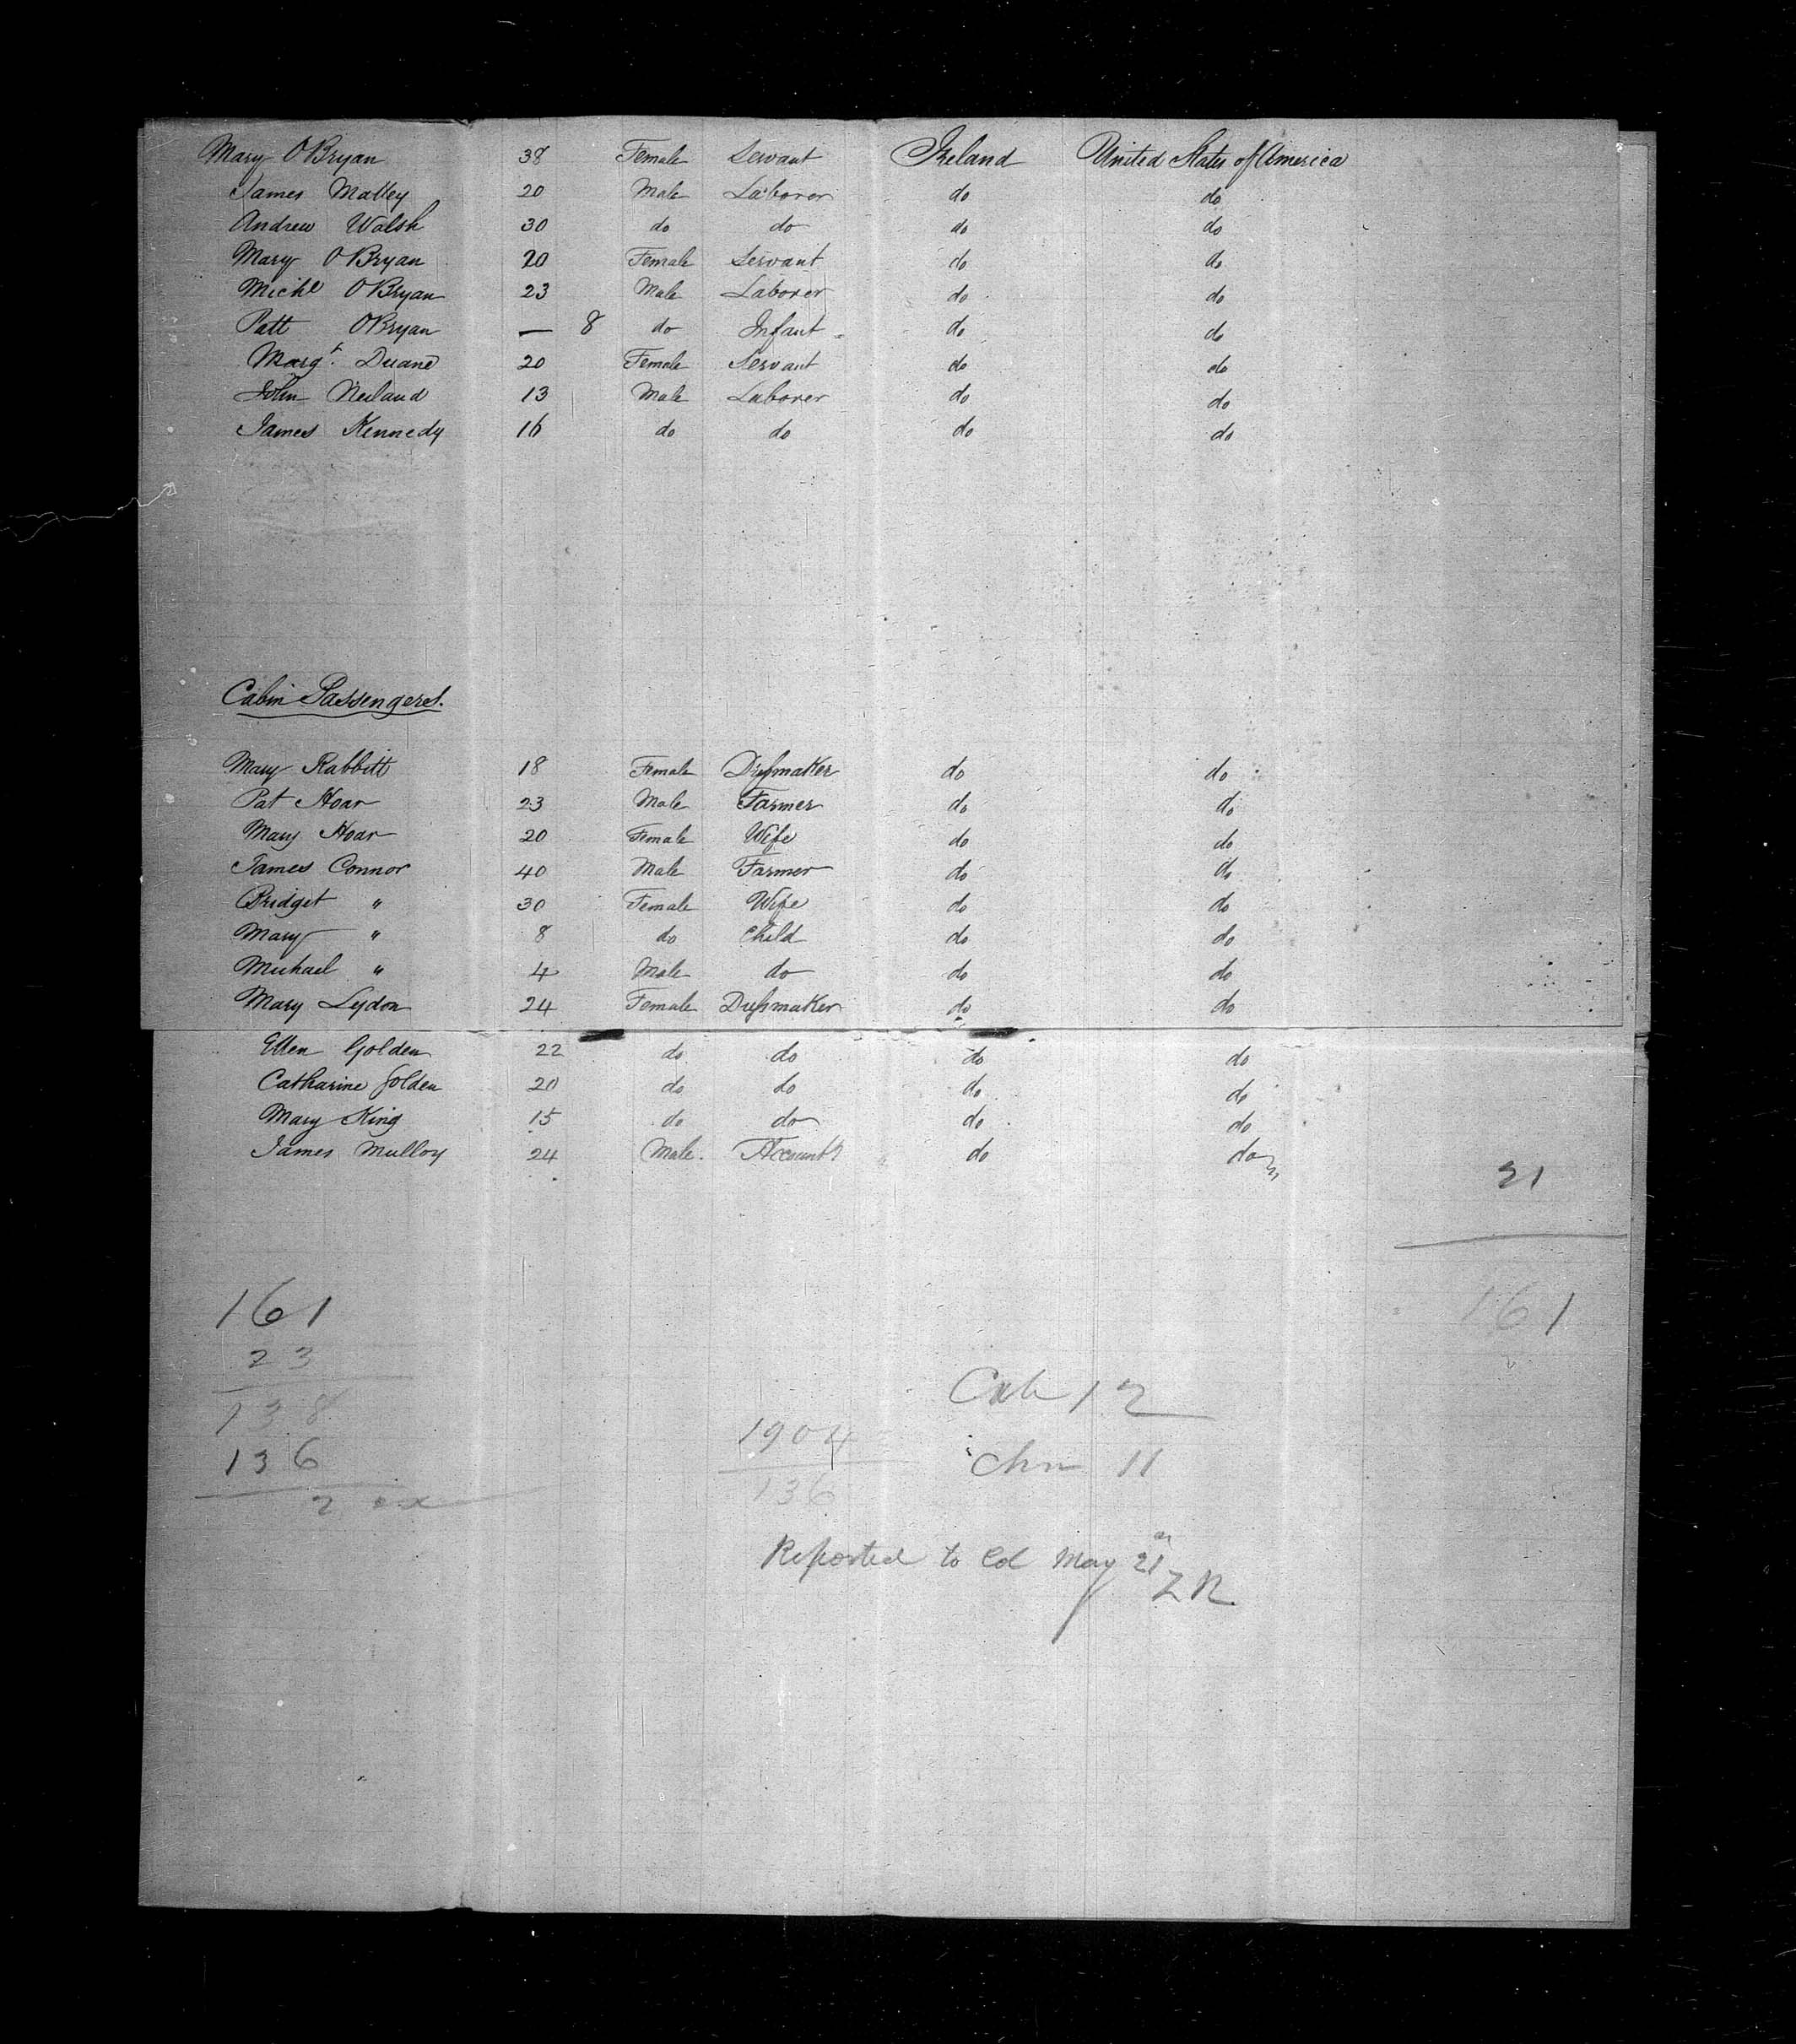 Mary OBryan 38 Female Servant Ireland United States of America
James Malley 20 Male Laborer do do
Andrew Walsh 30 do do do do
Mary OBryan 20 Female Servant do do
Michl OBryan 23 Male Laborer do do
Patt OBryan — 8 do Infant do do
Margt Duane 20 Female Servant do do
John Neiland 13 Male Laborer do do
James Kennedy 16 do do do do
Cabin Passengers.
Mary Rabbitt 18 Female Dressmaker do do
Pat Hoar 23 Male Farmer do do
Mary Hoar 20 Female Wife do do
James Connor 40 Male Farmer do do
Bridget " 30 Female Wife do do
Mary " 8 do Child do do
Michael " 4 Male do do do
Mary Lydon 24 Female Dressmaker do do
Ellen Golden 22 do do do do
Catharine Golden 20 do do do do
Mary King 15 do do do do
James Mulloy 24 Male. Accountt do do
21
161
161
23
138
136
2
Cab 12
1904
136
Chn 11
Reported to Col May 21
Z R